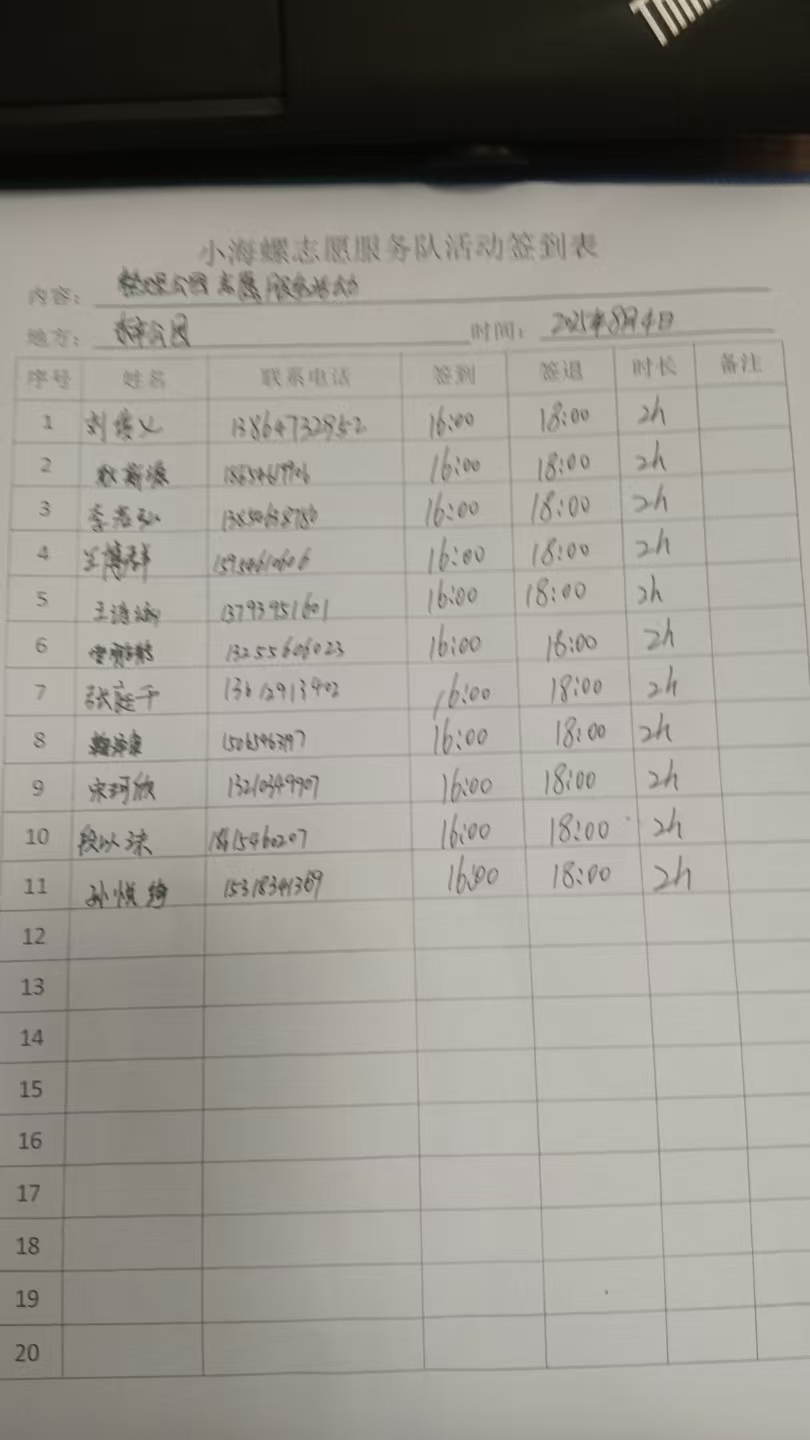 Thin
小海螺志愿服务队活动签到表
内容： 整理公园志愿服务活动
地方： 公园 时间： 2021年8月4日
序号 姓名 联系电话 签到 签退 时长 备注
1 13864732952 16:00 18:00 2h
2 16:00 18:00 2h
3 16:00 18:00 2h
4 16:00 18:00 2h
5 13793951601 16:00 18:00 2h
6 13255606023 16:00 18:00 2h
7 张庭千 13612913402 16:00 18:00 2h
8 16:00 18:00 2h
9 宋珂欣 13210349907 16:00 18:00 2h
10 段以沫 18615460207 16:00 18:00 2h
11 孙悦绮 15318341369 16:00 18:00 2h
12
13
14
15
16
17
18
19
20